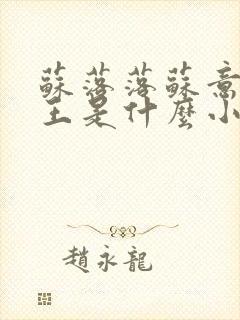 蘇落落蘇意
王是什麼小
趙永龍